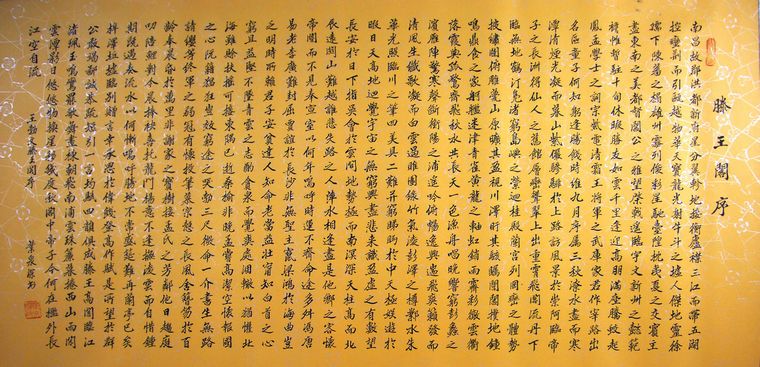 滕王閣序
南昌故郡洪都新府星分翼軫地接衡廬襟三江而帶五湖
控蠻荊而引甌越物華天寶龍光射牛斗之墟人傑地靈徐
孺下陳蕃之榻雄州霧列俊彩星馳臺隍枕夷夏之交賓主
盡東南之美都督閻公之雅望棨戟遙臨宇文新州之懿範
襜帷暫駐十旬休暇勝友如雲千里逢迎高朋滿座騰蛟起
鳳孟學士之詞宗紫電清霜王將軍之武庫家君作宰路出
名區童子何知躬逢勝餞時維九月序屬三秋潦水盡而寒
潭清煙光凝而暮山紫儼驂騑於上路訪風景於崇阿臨帝
子之長洲得仙人之舊館層巒聳翠上出重霄飛閣流丹下
臨無地鶴汀鳧渚窮島嶼之縈迴桂殿蘭宮列岡巒之體勢
披繡闥俯雕甍山原曠其盈視川澤盱其駭矚閭閻撲地鐘
鳴鼎食之家舸艦迷津青雀黃龍之軸虹銷雨霽彩徹雲衢
落霞與孤鶩齊飛秋水共長天一色漁舟唱晚響窮彭蠡之
濱雁陣驚寒聲斷衡陽之浦遙吟俯暢逸興遄飛爽籟發而
清風生纖歌凝而白雲遏睢園綠竹氣凌彭澤之樽鄴水朱
華光照臨川之筆四美具二難并窮睇眄於中天極娛遊於
暇日天高地迥覺宇宙之無窮興盡悲來識盈虛之有數望
長安於日下指吳會於雲間地勢極而南溟深天柱高而北
辰遠關山難越誰悲失路之人萍水相逢盡是他鄉之客懷
帝閽而不見奉宣室以何年嗚呼時運不齊命途多舛馮唐
易老李廣難封屈賈誼於長沙非無聖主竄梁鴻於海曲豈
乏明時所賴君子安貧達人知命老當益壯寧知白首之心
窮且益堅不墜青雲之志酌貪泉而覺爽處涸轍以猶懽北
海雖賒扶搖可接東隅已逝桑榆非晚孟嘗高潔空懷報國
之心阮籍猖狂豈效窮途之哭勃三尺微命一介書生無路
請纓等終軍之弱冠有懷投筆慕宗愨之長風舍簪笏於百
齡奉晨昏於萬里非謝家之寶樹接孟氏之芳鄰他日趨庭
叨陪鯉對今晨捧袂喜託龍門楊意不逢撫凌雲而自惜鍾
期既遇奏流水以何慚嗚呼勝地不常盛筵難再蘭亭已矣
梓澤丘墟臨別贈言幸承恩於偉餞登高作賦是所望於群
公敢竭鄙誠恭疏短引一言均賦四韻俱成滕王高閣臨江
渚佩玉鳴鸞罷歌舞畫棟朝飛南浦雲珠簾暮捲西山雨閒
雲潭影日悠悠物換星移幾度秋閣中帝子今何在檻外長
江空自流
王勃文滕王閣序